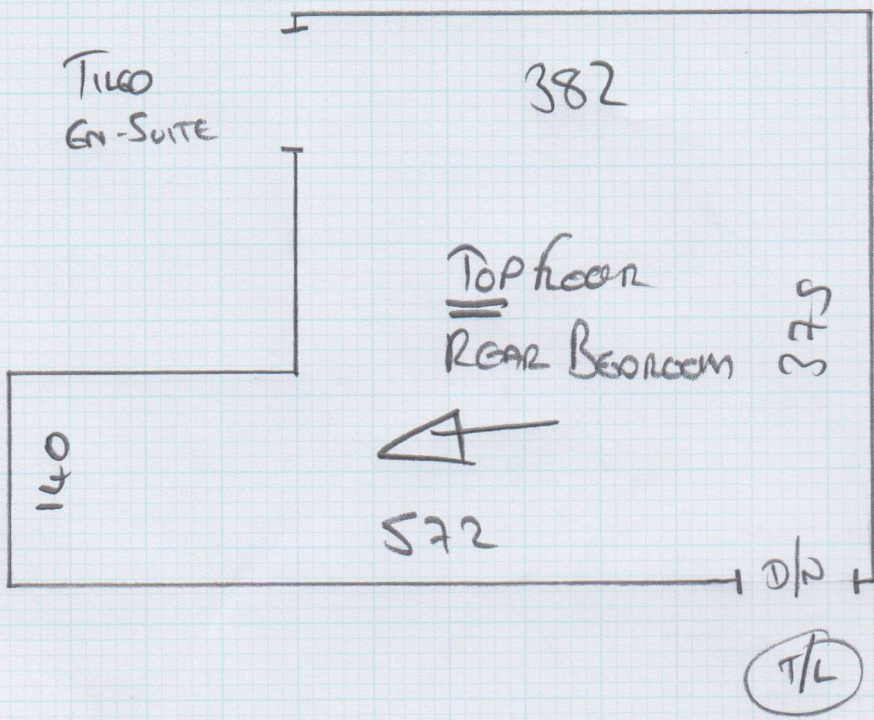 TILED
EN-SUITE
382
TOP FLOOR
REAR BEDROOM
379
140
572
D/N
T/L